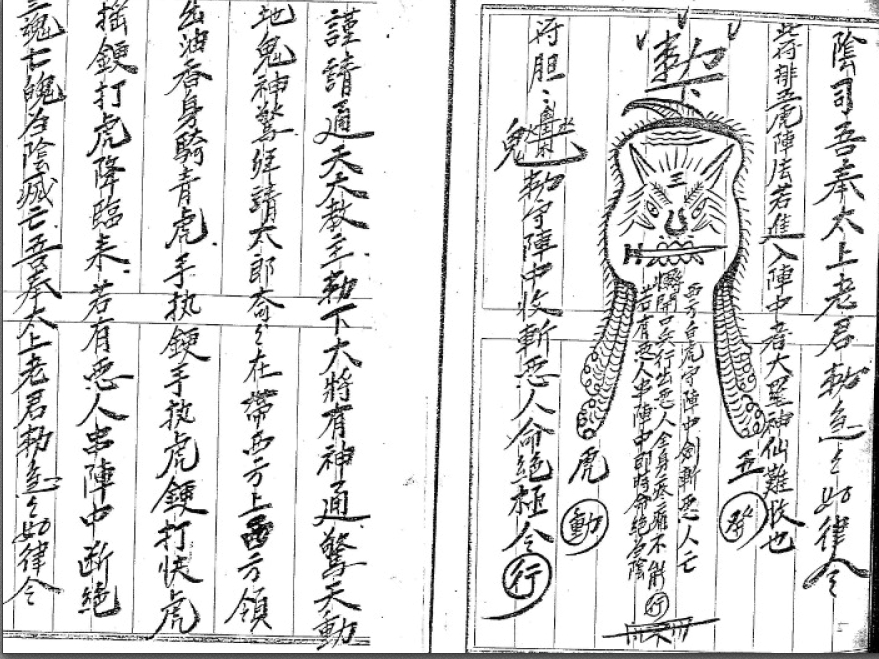 陰司吾奉太上老君勅急々如律令
此符排五虎陣法若進入陣中者大罣神仙難收也
勅下
三
西方白虎守陣中劍斬惡人亡
開口吳行出惡人全身麻癱不能行
若有惡人串陣中即時命絕
五 發
虎 動
符胆
鬼 勅守陣中收斬惡人命絕極令行
謹請通天大教主勅下大將有神通驚天動
地鬼神驚拜請太郎爺々在帶西方上西方領
出油香身騎青虎手执鋰手執虎鋰打快虎
搖鋰打虎降臨来若有惡人串陣中断絕
三魂七魄在陰滅亡吾奉太上老君勅急々如律令